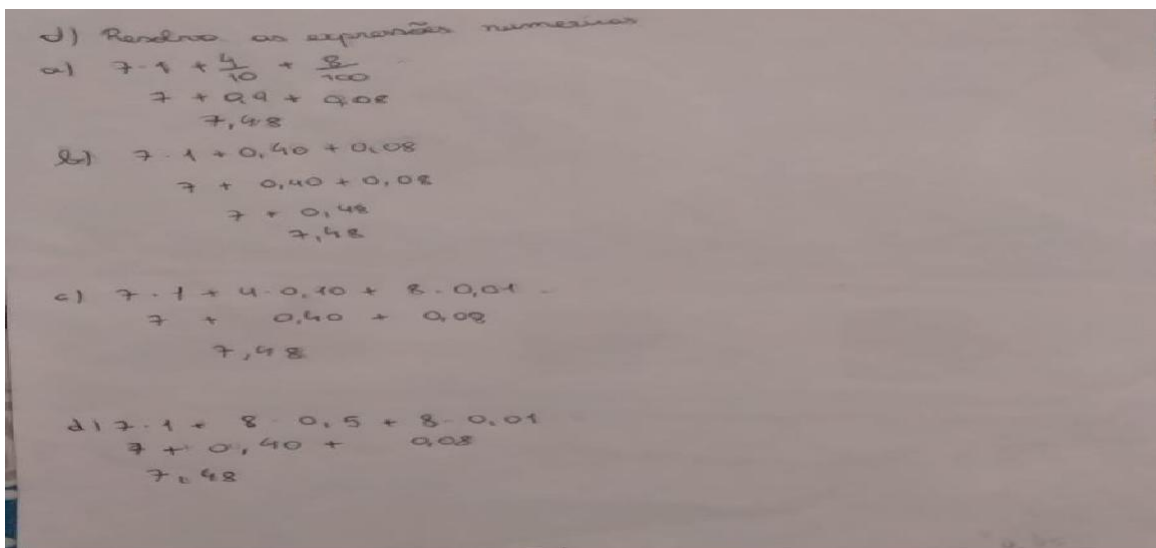 d) Resolva as expressões numericas
a) 7 · 1 + 4/10 + 8/100
7 + 0,4 + 0,08
7,48
b) 7 · 1 + 0,40 + 0,08
7 + 0,40 + 0,08
7 + 0,48
7,48
c) 7 · 1 + 4 · 0,10 + 8 · 0,01
7 + 0,40 + 0,08
7,48
d) 7 · 1 + 8 · 0,5 + 8 · 0,01
7 + 0,40 + 0,08
7,48